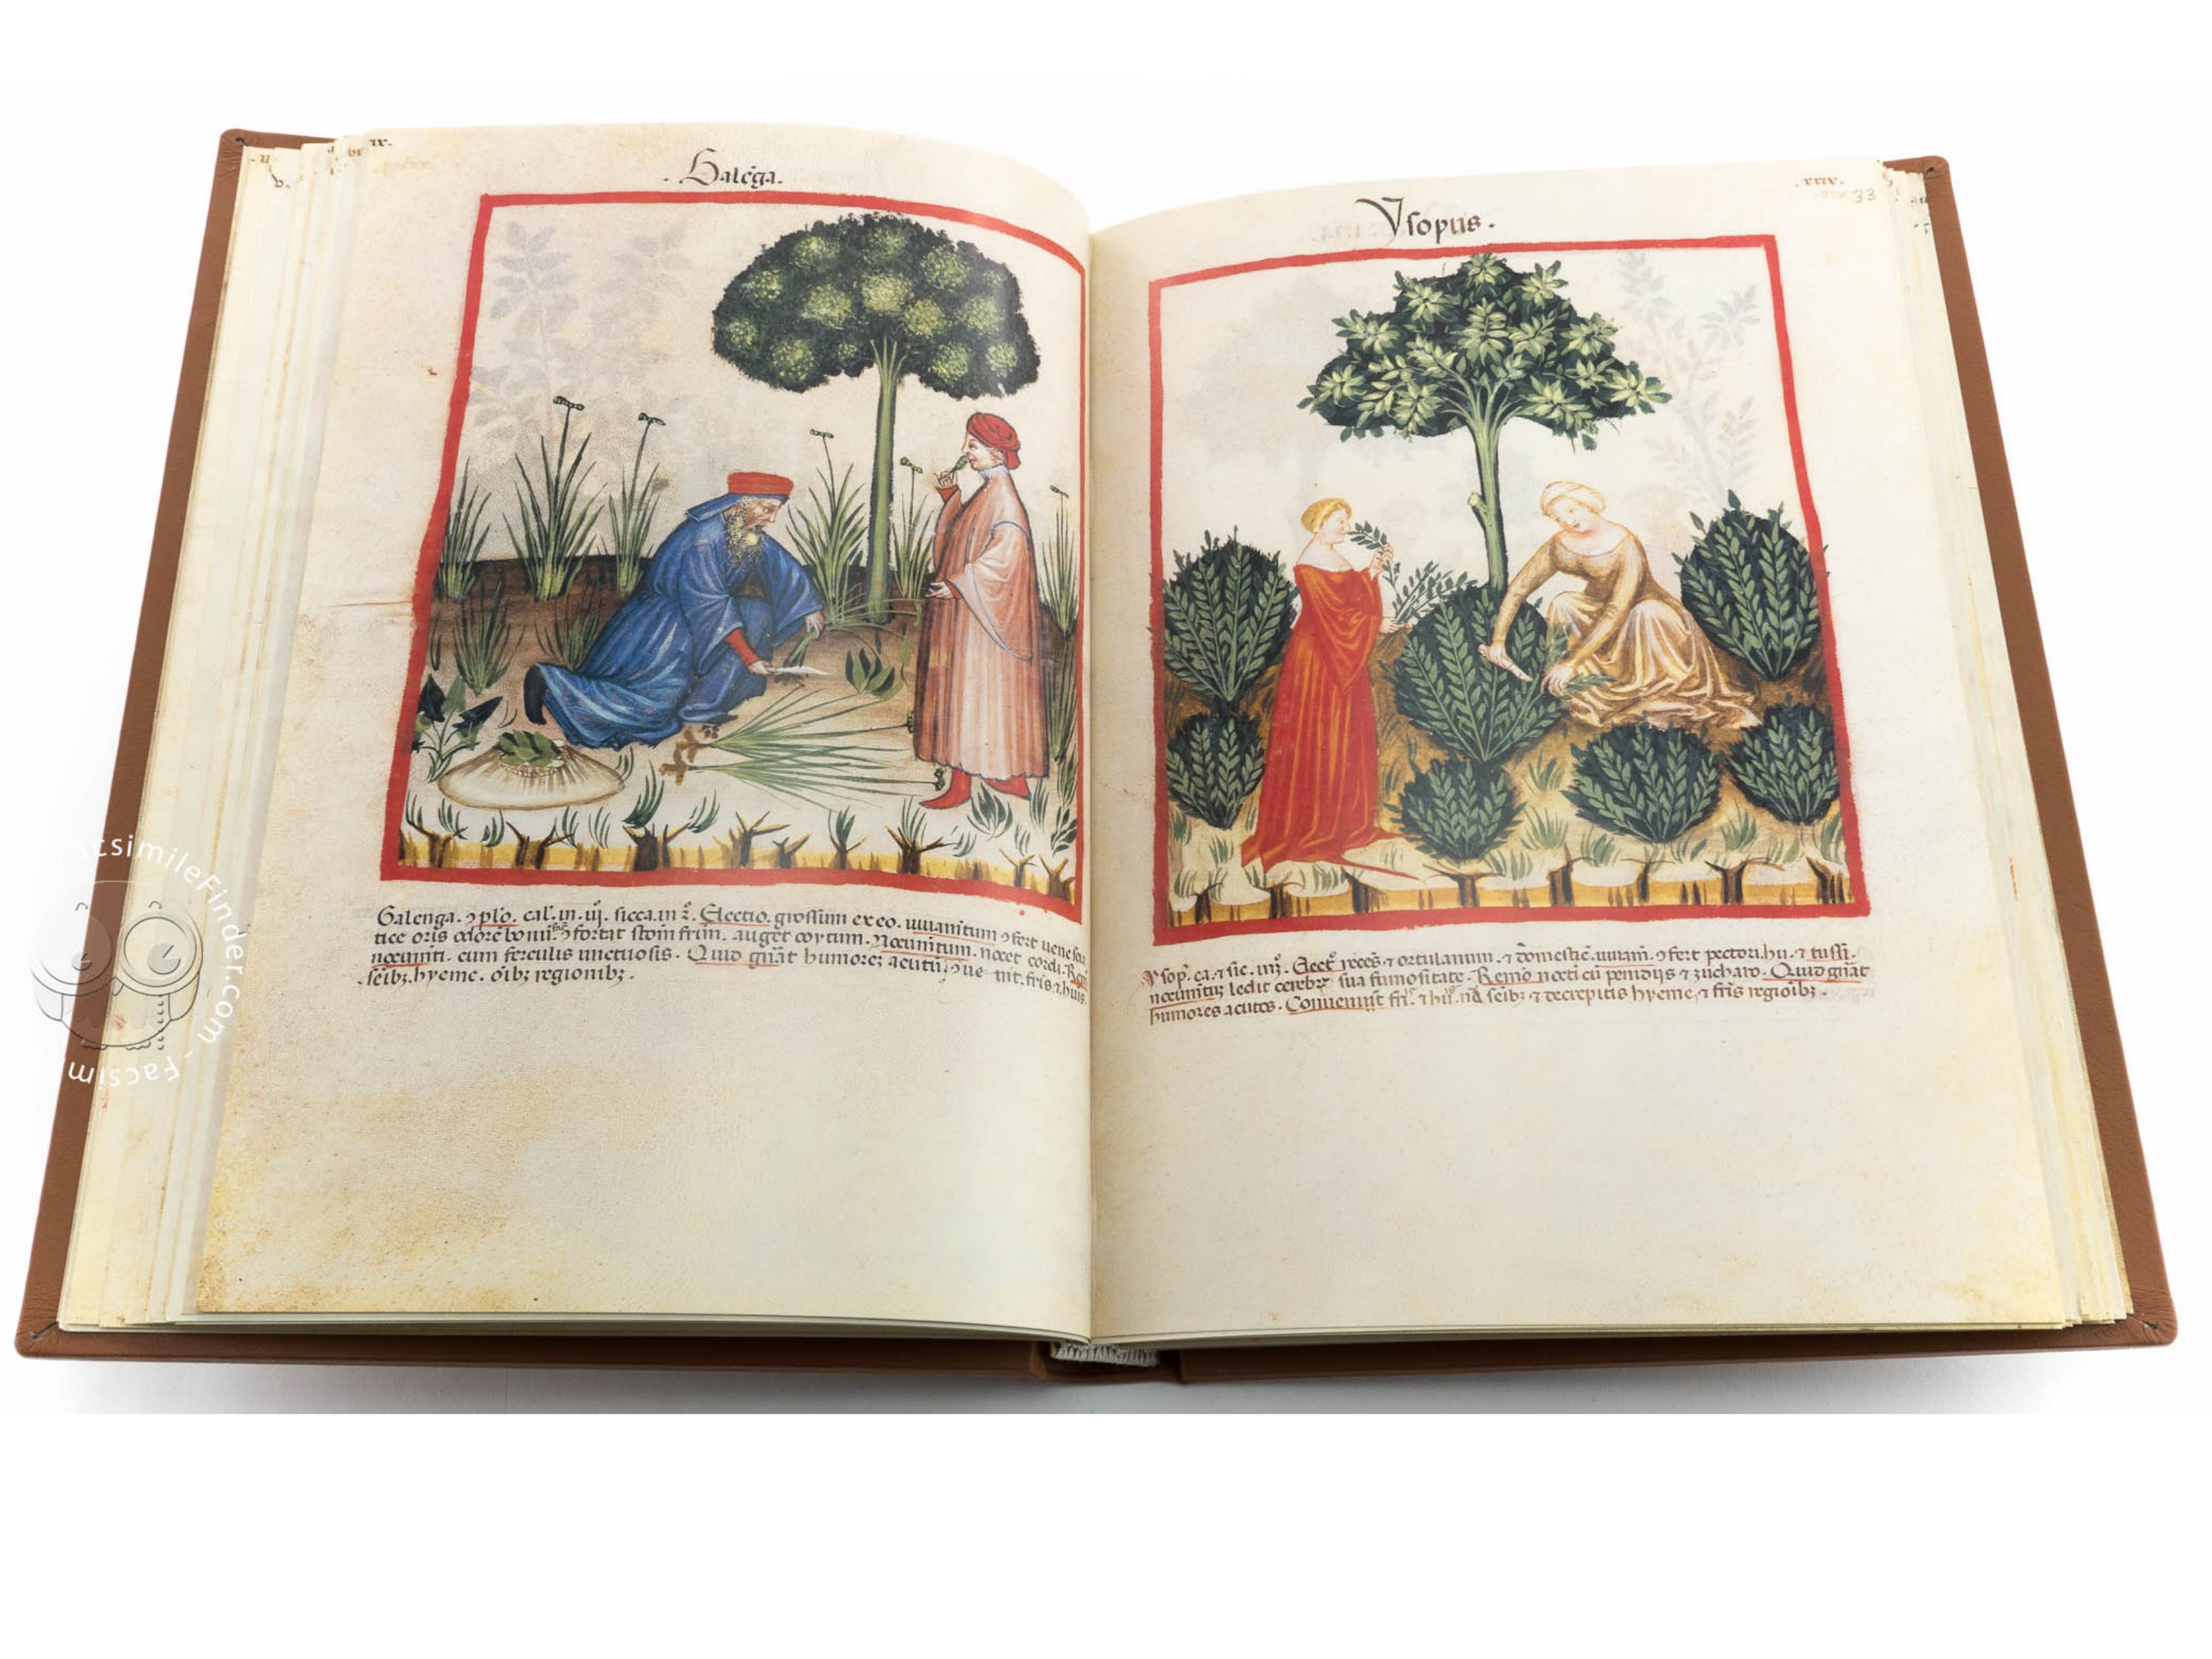 . Galēga.
Galenga. ɔplo. cal. in. iij. sicca. in 2. Electio. grossum ex eo. iuuamtum ɔfert uenesea
tice oris odorē bonū. ɔfortat stoīm frīm. auget coytum. Nocumtum. nocet cordi. Remō
nocumti. cum ferculis unctuosis. Quid gnāt humorez acutū. ɔue
seībꝫ. hyeme. oībꝫ regionibꝫ.
.xxix.
33
Ysopus.
Ysop. ca. ⁊ sic. in 3. Elect. ⁊ ortulanum. ⁊ domesticū. iuuam. ɔfert pectori. ⁊ tussi.
nocumtuꝫ ledit cerebrꝫ sua fumositate. Remō nocti cū penidijs ⁊ zucharo. Quid gnāt
humores acutos. Conueniūt fri. ⁊ seībꝫ ⁊ decrepitis hyeme, ⁊ frīs regioībꝫ.
FacsimileFinder.com - Facsim